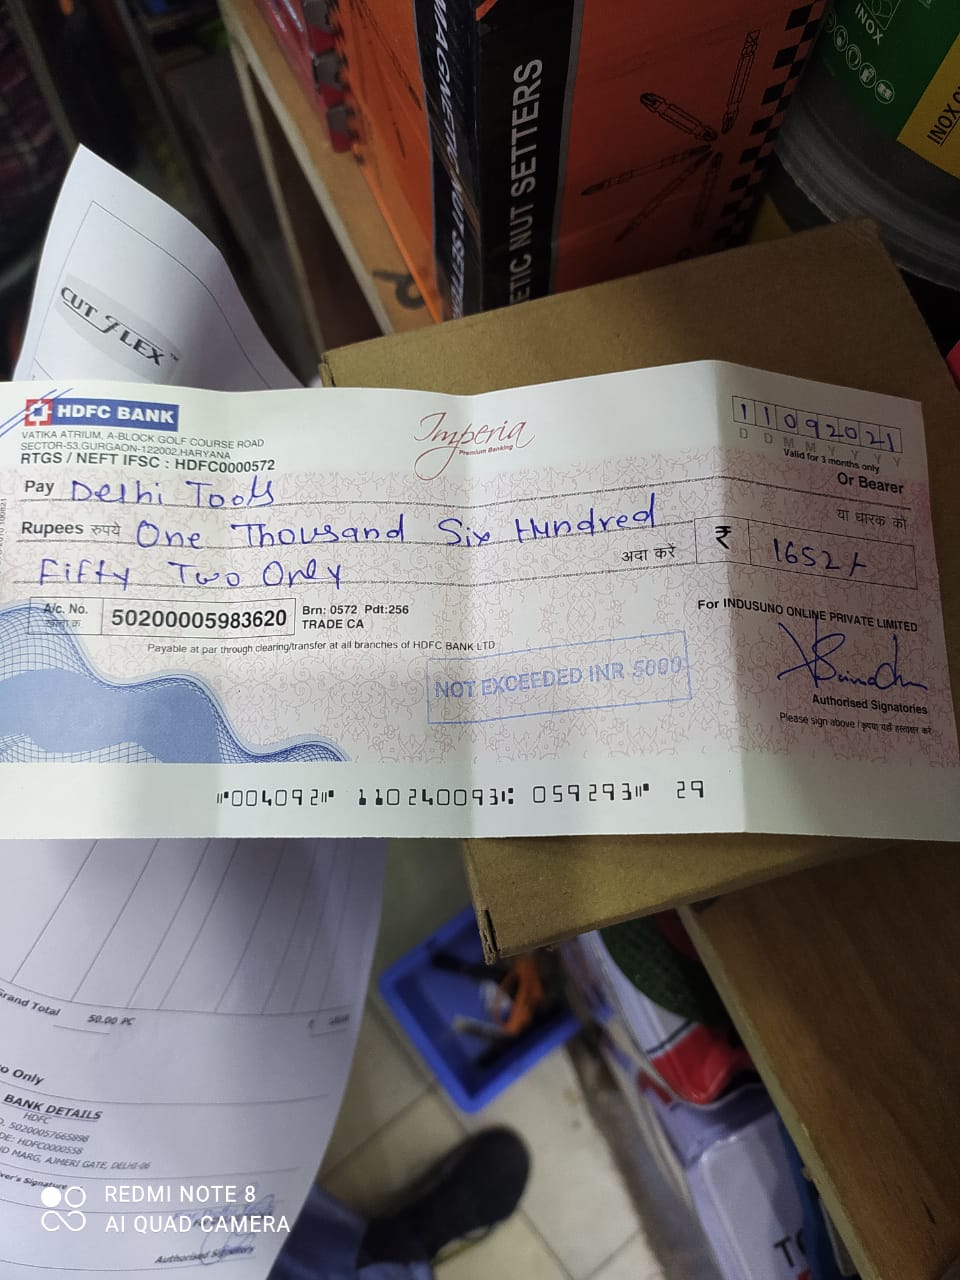 INOX
INOX
MAGNETIC NUT SETTERS
ETIC NUT SETTERS
CUT FLEX™
HDFC BANK
VATIKA ATRIUM, A-BLOCK GOLF COURSE ROAD
SECTOR-53,GURGAON-122002,HARYANA
RTGS / NEFT IFSC : HDFC0000572
Imperia
Premium Banking
11092021
D D M M Y Y Y Y
Valid for 3 months only
Pay Delhi Tools
Or Bearer
या धारक को
Rupees रुपये One Thousand Six Hundred
Fifty Two Only
अदा करें
₹ 1652/-
A/c. No.
50200005983620
Brn: 0572 Pdt:256
TRADE CA
For INDUSUNO ONLINE PRIVATE LIMITED
Payable at par through clearing/transfer at all branches of HDFC BANK LTD
NOT EXCEEDED INR 5000
Authorised Signatories
Please sign above / कृपया यहाँ हस्ताक्षर करें
⑈004092⑈ 110240093⑆ 059293⑈ 29
Grand Total 50.00 PC
o Only
BANK DETAILS
HDFC
50200057665898
DE: HDFC0000558
D MARG, AJMERI GATE, DELHI-06
ver's Signature
Authorised Signatory
REDMI NOTE 8
AI QUAD CAMERA